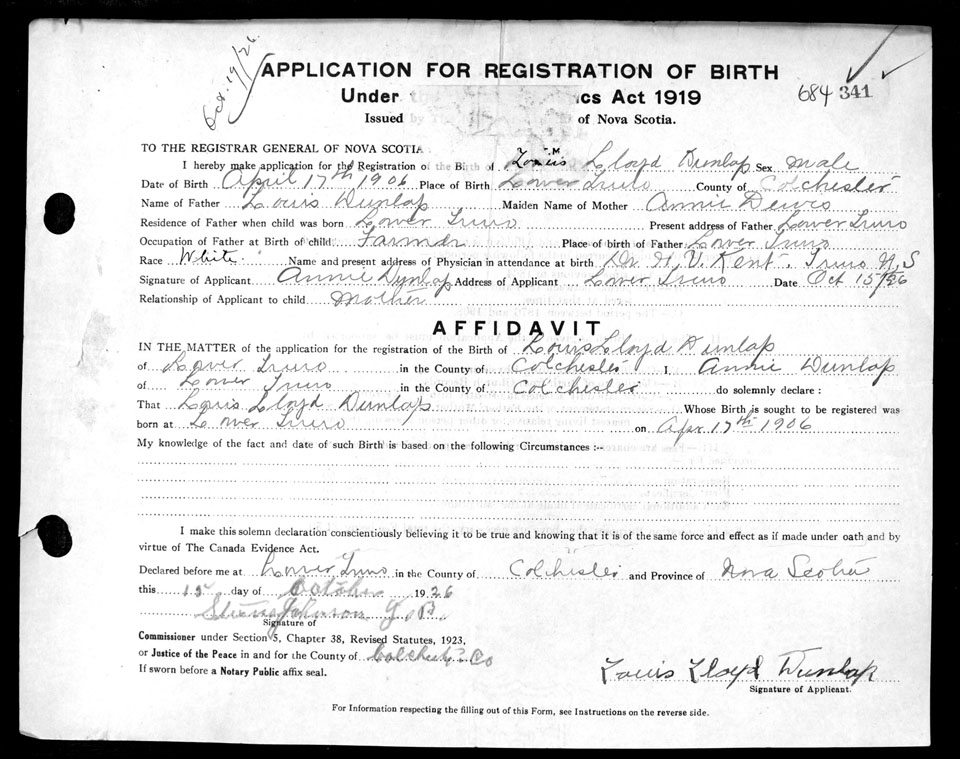 Oct. 19/26.
APPLICATION FOR REGISTRATION OF BIRTH
684 341
Under the cs Act 1919
Issued by of Nova Scotia.
TO THE REGISTRAR GENERAL OF NOVA SCOTIA
I hereby make application for the Registration of the Birth of Louis Lloyd Dunlap Sex Male
Date of Birth April 17th 1906 Place of Birth Lower Truro County of Colchester
Name of Father Louis Dunlap Maiden Name of Mother Annie
Residence of Father when child was born Lower Truro Present address of Father Lower Truro
Occupation of Father at Birth of child Farmer Place of birth of Father Lower Truro
Race White. Name and present address of Physician in attendance at birth Dr. H. V. Kent. Truro N. S
Signature of Applicant Annie Dunlap Address of Applicant Lower Truro Date Oct 15/26
Relationship of Applicant to child Mother
AFFIDAVIT
IN THE MATTER of the application for the registration of the Birth of Louis Lloyd Dunlap
of Lower Truro in the County of Colchester I Annie Dunlap
of Lower Truro in the County of Colchester do solemnly declare :
That Louis Lloyd Dunlap Whose Birth is sought to be registered was
born at Lower Truro on Apr 17th 1906
My knowledge of the fact and date of such Birth is based on the following Circumstances :-
I make this solemn declaration conscientiously believing it to be true and knowing that it is of the same force and effect as if made under oath and by
virtue of The Canada Evidence Act.
Declared before me at Lower Truro in the County of Colchester and Province of Nova Scotia
this 15 day of October 1926
Johnson J. P.
Signature of
Commissioner under Section 5, Chapter 38, Revised Statutes, 1923,
or Justice of the Peace in and for the County of Colchester Co
If sworn before a Notary Public affix seal.
Louis Lloyd Dunlap
Signature of Applicant.
For Information respecting the filling out of this Form, see Instructions on the reverse side.